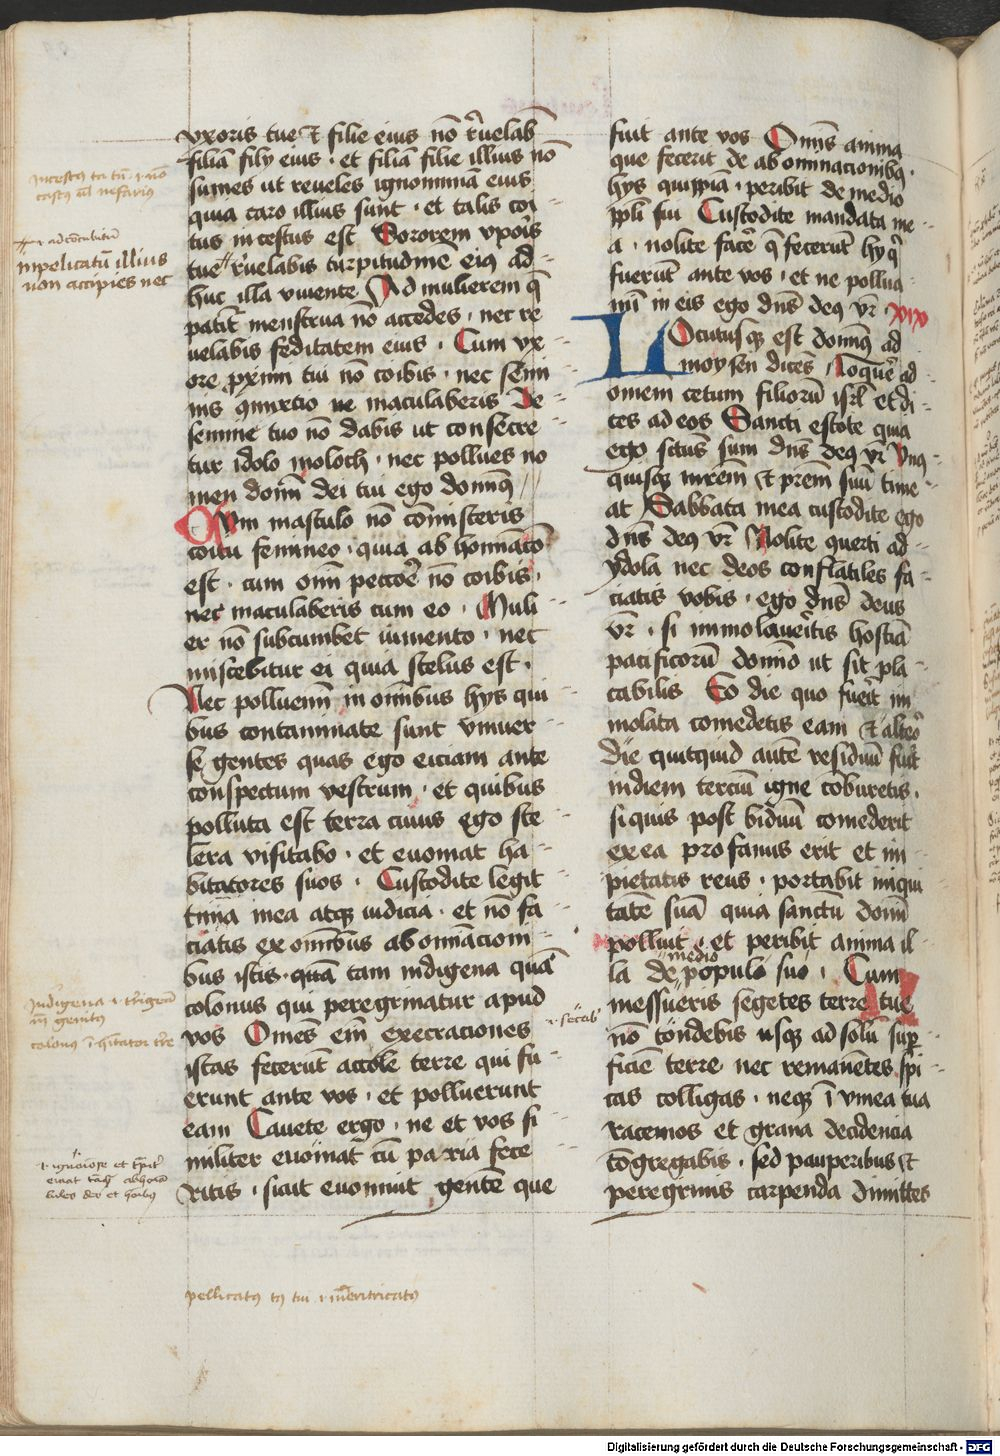 uxoris tue et filie eius nō r̄uelab̄
filiā filij eius · et filiā filie illius nō
sumes ut reueles ignominiā eius
quia caro illius sunt · et talis coi
tus incestus est Sororem uxoris
tue r̄uelabis turpitudinē eiꝯ ad
huc illa vivente Ad mulierem q̄
patit̄ menstrua nō accedes · nec re
uelabis feditatem eius · Cum vx
ore p̄ximi tui nō coibis · nec semi
nis q̄mixtio ne maculaberis De
semine tuo nō dabis ut consecre
tur idolo moloch · nec pollues no
men dom̄ dei tui ego dominꝯ
Cum masculo nō cōmisceris
coitu femineo · quia abhominatō
est · cum om̄i peccor̄e nō coibis ·
nec maculaberis cum eo · Muli
er nō subcumbet iumento · nec
miscebitur ei quia scelus est ·
Nec polluemī in om̄ibus hijs qui
bus contaminate sunt vniuer
se gentes quas ego eiciam ante
conspectum vestrum · et quibus
polluta est terra cuius ego sce
lera visitabo · et euomat ha
bitatores suos · Custodite legit
tima mea atqꝫ iudicia · et nō fa
ciatis ex om̄ibus abominacioni
bus istis · quā tam indigena quā
colonus qui peregrinatur apud
vos Omēs em̄ execraciones
istas fecerūt accole terre qui fu
erunt ante vos · et polluerunt
eam Cauete ergo · ne et vos si
militer euomāt cū paria fece
ritis · sicut euomuit gentē que
fuit ante vos Om̄is anima
que fecerit de abominacionibꝯ
hijs quippiā · peribit de medio
pp̄li sui Custodite mandata me
a · nolite facē q̄ fecerūt hij q̄
fuerūt ante vos · et ne pollua
mī in eis ego dn̄s deꝯ vr̄ · xix
Locutusqꝫ est dominꝯ ad
moysen dicēs loquē ad
omem cetum filiorū isrl̄ et di
ces ad eos Sancti estote quia
ego sc̄tus sum dn̄s deꝯ vr̄ Vnꝯ
quisqꝫ mrēm et prēm suū time
at Sabbata mea custodite ego
dn̄s deꝯ vr̄ Nolite q̄uerti ad
ydola nec deos conflatiles fa
ciatis vobis · ego dn̄s deus
vr̄ · si immolaueritis hostiā
pacificorū domino ut sit pla
cabilis Eo die quo fuerit im
molata comedetis eam et altero
die quitquid autē residuū fuit
in diem terciū igne coburetis ·
si quis post biduū comederit
ex ea profanus erit et im
pietatis reus · portabit iniqui
tatē suā quia sanctū domī
polluit · et peribit anima il
la de medio populo suo · Cum
messueris segetes terre tue
nō tondebis usqꝫ ad solū sup̄
ficiē terre nec remanētes spi
cas colligas · neqꝫ ī vinea tua
racemos et grana decidencia
cōgregabis · sed pauperibus et
peregrinis carpenda dimittes
in pelicatū illius
non accipies nec
ad concubitū
indigena
pellicatꝯ
Digitalisierung gefördert durch die Deutsche Forschungsgemeinschaft - DFG